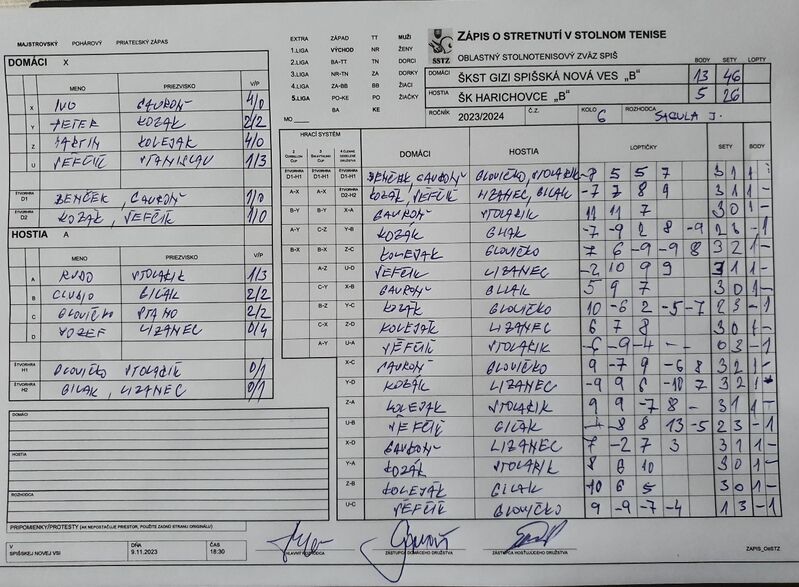 MAJSTROVSKÝ POHÁROVÝ PRIATEĽSKÝ ZÁPAS
EXTRA ZÁPAD TT MUŽI
1.LIGA VÝCHOD NR ŽENY
2.LIGA BA-TT TN DORCI
3.LIGA NR-TN ZA DORKY
4.LIGA ZA-BB BB ŽIACI
5.LIGA PO-KE PO ŽIAČKY
BA KE
MO
SSTZ
ZÁPIS O STRETNUTÍ V STOLNOM TENISE
OBLASTNÝ STOLNOTENISOVÝ ZVÄZ SPIŠ
BODY SETY LOPTY
DOMÁCI ŠKST GIZI SPIŠSKÁ NOVÁ VES „B" 13 46
HOSTIA ŠK HARICHOVCE „B" 5 26
ROČNÍK 2023/2024 Č.Z. KOLO 6 ROZHODCA SAGULA J.
DOMÁCI X
MENO PRIEZVISKO V/P
X IVO GAVROŇ 4/0
Y PETER KOZÁK 2/2
Z MARTIN KOLEJÁK 4/0
U VEFČÍK STANISLAV 1/3
ŠTVORHRA D1 BENČEK, GAVROŇ 1/0
ŠTVORHRA D2 KOZÁK, VEFČÍK 1/0
HOSTIA A
MENO PRIEZVISKO V/P
A RUDO STOLÁRIK 1/3
B GILAK 2/2
C GLOVIČKO STANO 2/2
D JOZEF LIZANEC 0/4
ŠTVORHRA H1 GLOVIČKO STOLÁRIK 0/1
ŠTVORHRA H2 GILAK, LIZANEC 0/1
HRACÍ SYSTÉM
DOMÁCI HOSTIA LOPTIČKY SETY BODY
D1-H1 D1-H1 D1-H1 BENČEK, GAVROŇ GLOVIČKO, STOLÁRIK -8 5 5 7 3 1 1 -
A-X A-X D2-H2 KOZÁK, VEFČÍK LIZANEC, GILAK -7 7 8 9 3 1 1 -
B-Y B-Y X-A GAVROŇ STOLÁRIK 11 11 7 3 0 1 -
A-Y C-Z Y-B KOZÁK GILAK -7 -9 2 8 -9 2 3 - 1
B-X B-X Z-C KOLEJÁK GLOVIČKO 7 6 -9 -9 8 3 2 1 -
A-Z U-D VEFČÍK LIZANEC -2 10 9 9 3 1 1 -
C-Y X-B GAVROŇ GILAK 5 9 7 3 0 1 -
B-Z Y-C KOZÁK GLOVIČKO 10 -6 2 -5 -7 2 3 - 1
C-X Z-D KOLEJÁK LIZANEC 6 7 8 3 0 1 -
A-Y U-A VEFČÍK STOLÁRIK -6 -9 -4 0 3 - 1
X-C GAVROŇ GLOVIČKO 9 -7 9 -6 8 3 2 1 -
Y-D KOZÁK LIZANEC -9 9 6 -10 7 3 2 1
Z-A KOLEJÁK STOLÁRIK 9 9 -7 8 3 1 1 -
U-B VEFČÍK GILAK -4 -8 8 13 -5 2 3 - 1
X-D GAVROŇ LIZANEC 7 -2 7 3 3 1 1 -
Y-A KOZÁK STOLÁRIK 8 6 10 3 0 1 -
Z-B KOLEJÁK GILAK 10 6 5 3 0 1 -
U-C VEFČÍK GLOVIČKO 9 -9 -7 -4 1 3 - 1
DOMÁCI
HOSTIA
ROZHODCA
PRIPOMIENKY/PROTESTY (AK NEPOSTAČUJE PRIESTOR, POUŽITE ZADNÚ STRANU ORIGINÁLU)
V DŇA ČAS
SPIŠSKEJ NOVEJ VSI 9.11.2023 18:30
HLAVNÝ ROZHODCA ZÁSTUPCA DOMÁCEHO DRUŽSTVA ZÁSTUPCA HOSŤUJÚCEHO DRUŽSTVA ZAPIS_OstSTZ